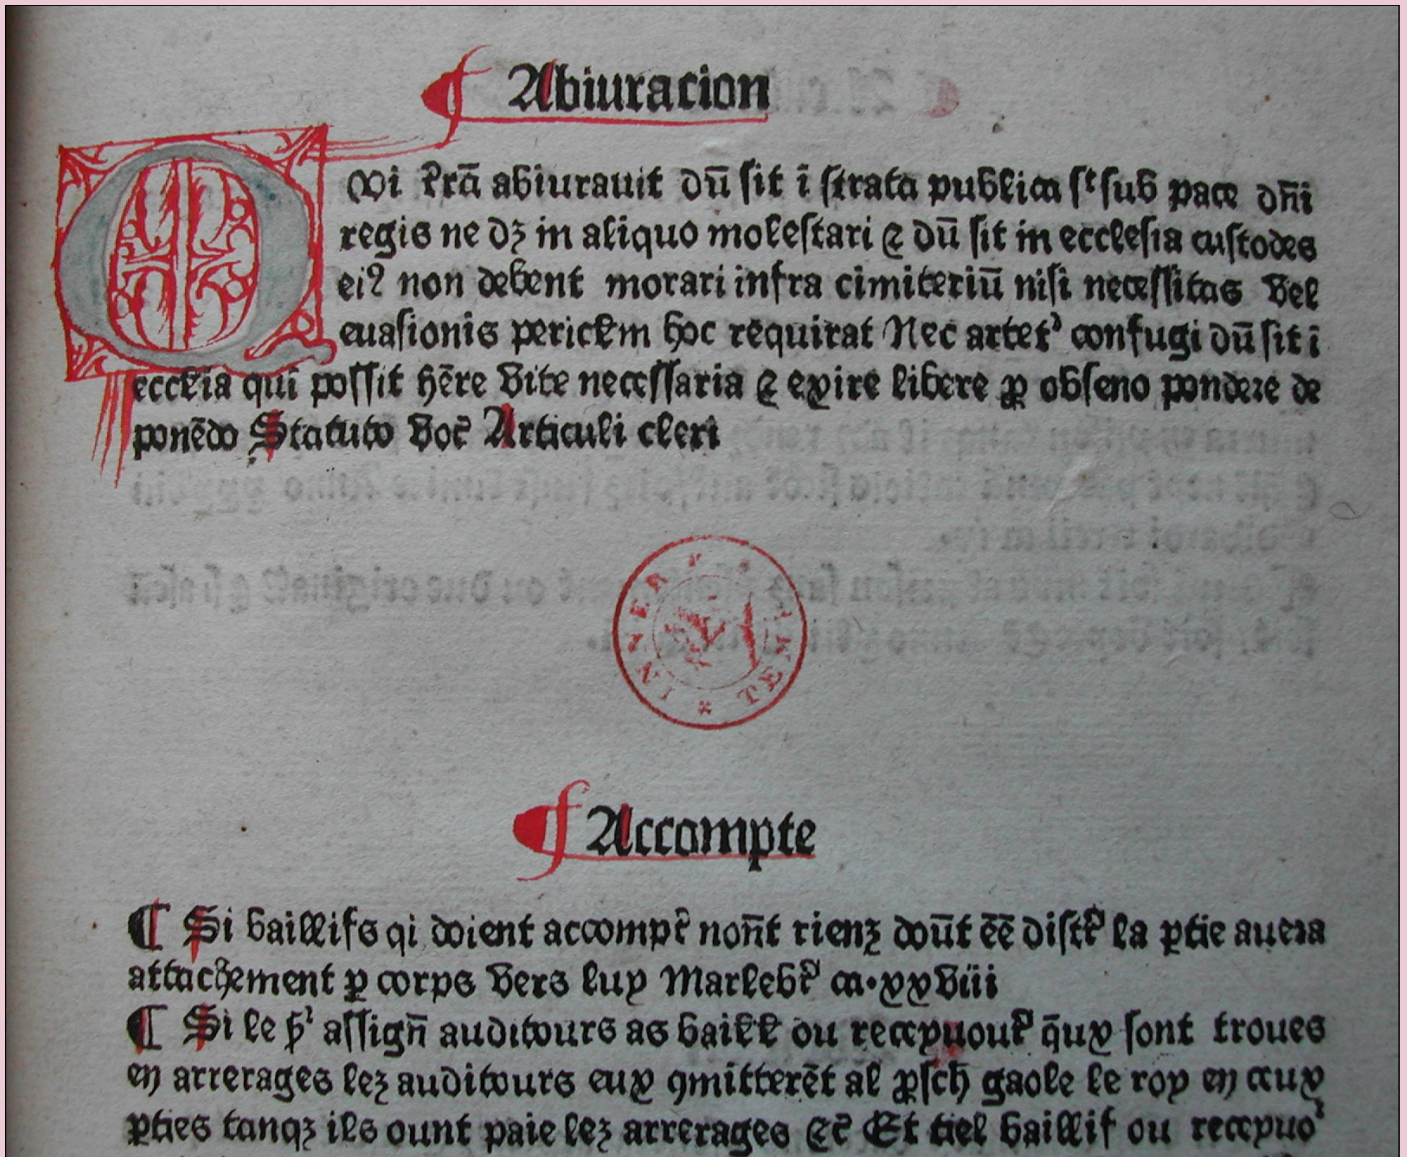 Abiuracion
Qvi t̄rā abiurauit dū sit ī strata publica sͭ sub pace dn̄i
regis ne dꝫ in aliquo molestari ⁊ dū sit in ecclesia custodes
eiꝰ non debent morari infra cimiteriū nisi necessitas vel
euasionis pericľm hoc requirat Nec artetᷣ confugi dū sit ī
eccľia qui possit hēre vite necessaria ⁊ exire libere ꝓ obseno pondere de
ponēdo Statuto voc̄ Articuli cleri
INNER TEMPLE
Accompte
¶ Si baillifs qi doient accomptˀ non̄t rienz doūt ēē distrˀ la ꝑtie auera
attachement ꝑ corps vers luy Marlebrˀ ca·xxviii
¶ Si le assign̄ auditours as baiłł ou receyuourˀ q̄ux sont troues
en arrerages lez auditours eux ꝯmitterēt al ꝓsch gaole le roy en ceux
ꝑties tanqꝫ ils ount paie lez arrerages ⁊c̄ Et tiel baillif ou receyuoᷣ